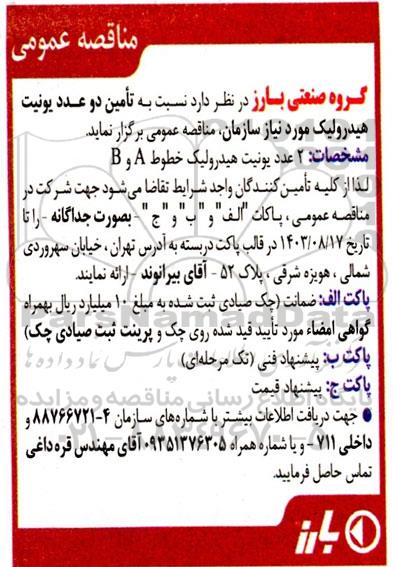 مناقصه عمومی
گروه صنعتی بارز در نظر دارد نسبت به تأمین دو عدد یونیت
هیدرولیک مورد نیاز سازمان، مناقصه عمومی برگزار نماید.
مشخصات: ۲ عدد یونیت هیدرولیک خطوط A و B
لذا از کلیه تأمین کنندگان واجد شرایط تقاضا می‌شود جهت شرکت در
مناقصه عمومی ، پاکات "الف" و "ب" و "ج" - بصورت جداگانه - را تا
تاریخ ۱۴۰۳/۰۸/۱۷ در قالب پاکت دربسته به آدرس تهران ، خیابان سهروردی
شمالی ، هویزه شرقی ، پلاک ۵۲ - آقای بیرانوند - ارائه نمایند.
پاکت الف: ضمانت (چک صیادی ثبت شده به مبلغ ۱۰ میلیارد ریال بهمراه
گواهی امضاء مورد تأیید قید شده روی چک و پرینت ثبت صیادی چک)
پاکت ب: پیشنهاد فنی (تک مرحله‌ای)
پاکت ج: پیشنهاد قیمت
● جهت دریافت اطلاعات بیشتر با شماره‌های سازمان ۴-۸۸۷۶۶۷۲۱ و
داخلی ۷۱۱ - و یا شماره همراه ۰۹۳۵۱۳۷۶۳۰۵ آقای مهندس قره داغی
تماس حاصل فرمایید.
بارز